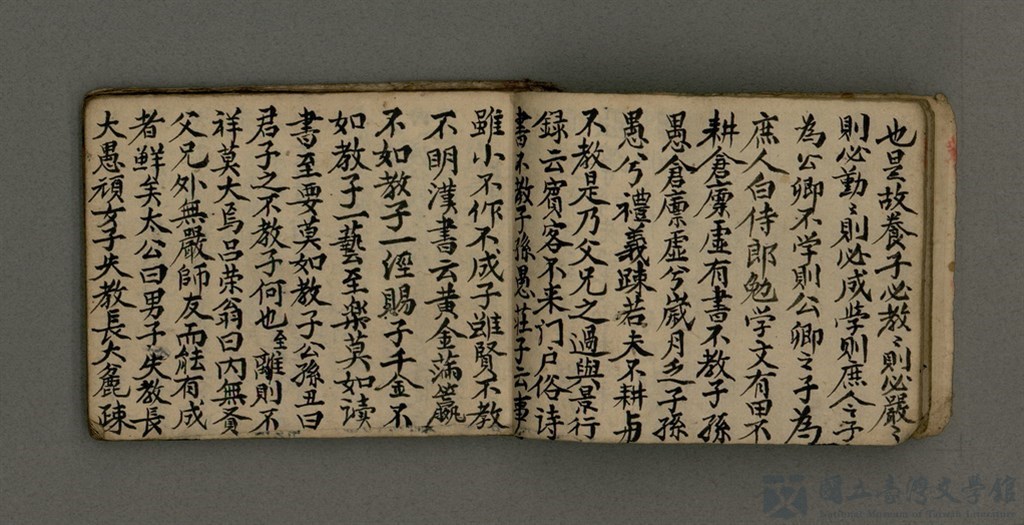 也是故養子必教〻則必嚴〻
則必勤〻則必成学則庶人之子
為公卿不学則公卿之子為
庶人白侍郎勉学文有田不
耕倉廪虛有書不教子孫
愚倉廪虛兮歲月乏子孫
愚兮禮義踈若夫不耕与
不教是乃父兄之過與景行
録云賓客不来门户俗诗
書不教子孫愚莊子云事
雖小不作不成子雖賢不教
不明漢書云黄金滿籯
不如教子一經賜子千金不
如教子一藝至樂莫如读
書至要莫如教子公孫丑曰
君子之不教子何也至離則不
祥莫大焉吕荣翁曰内無賢
父兄外無嚴師友而能有成
者鮮矣太公曰男子失教長
大愚頑女子失教長大麁踈
國立臺灣文学館
National Museum of Taiwan Literature